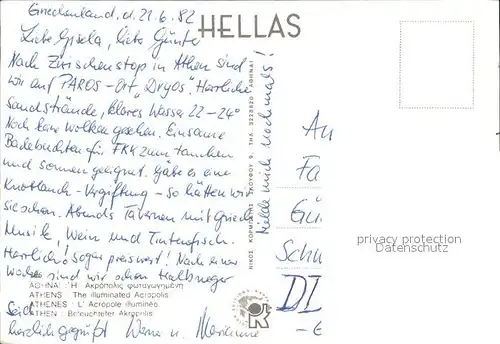 Griechenland, d. 21.6.82
HELLAS
Liebe Gisela, liebe Günter
Nach Zwischenstop in Athen sind
wir auf PAROS - Ort „Dryos". Herrliche
Sandstrände, klares Wasser 22-24°
Noch keine Wolken gesehen. Einsame
Badebuchten für FKK zum tauchen
und sonnen geeignet. Gäbe es eine
Knoblauch-Vergiftung - so hätten wir
sie schon. Abends Tavernen mit Griech
Musik, Wein und Tintenfisch.
Herrliche! sogar preiswert! Nach einer
Woche sind wir schon Halbneger
ΑΘΗΝΑΙ: Ἡ Ἀκρόπολις φωταγωγημένη
ATHENS: The illuminated Acropolis
ATHENES: L'Acropole illuminée
ATHEN: Beleuchteter Akropolis
Seid
herzlich gegrüßt
Melde mich nochmals!
An
Fa
Gü
Schu
DI
privacy protection
oldthing.de